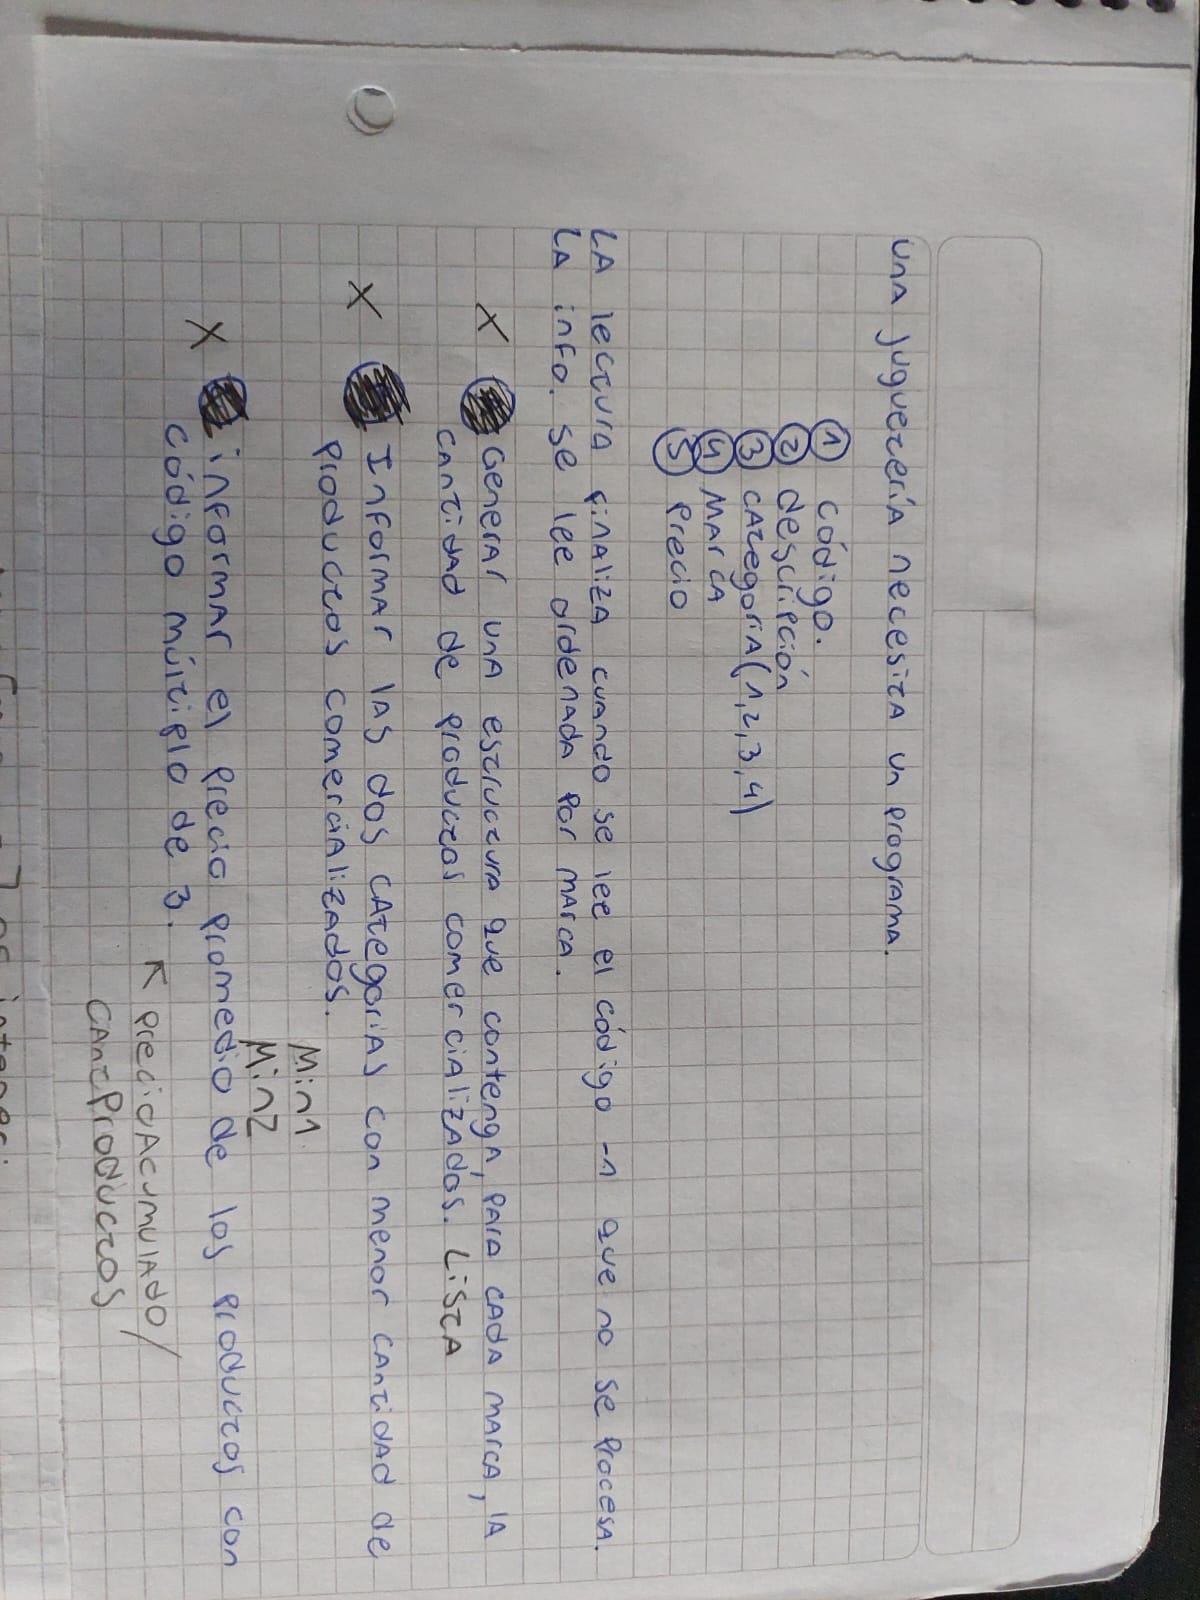 UNA juguetería necesita un programa.
① código.
② descripción
③ categoría (1,2,3,4)
④ MArCA
⑤ Precio
LA lectura finaliza cuando se lee el código -1 que no se procesa.
LA info. se lee ordenada por marca.
X Generar una estructura que contenga, para cada marca, la
cantidad de productos comercializados. Lista
X Informar las dos categorias con menor cantidad de
productos comercializados.
Min1
Min2
X informar el precio promedio de los productos con
código múltiplo de 3.
↖ precioAcumulado/
cantProductos